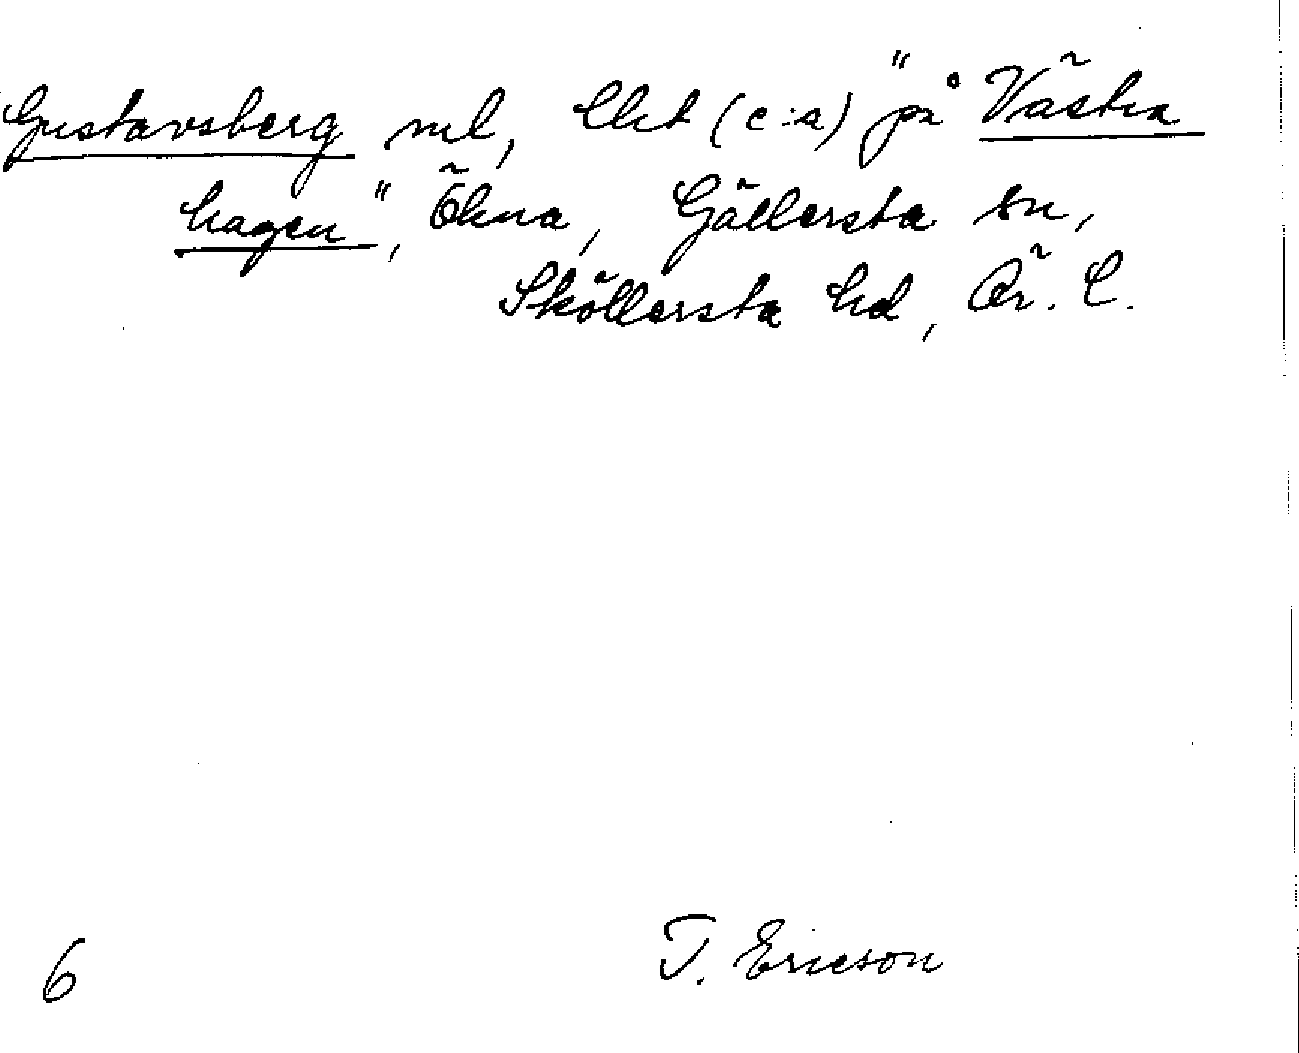 Gustavsberg ml, lht (c:a) "på Västra
hagen", Ökna, Gällersta sn,
Sköllersta hd, Ör. l.
6 T. Ericson